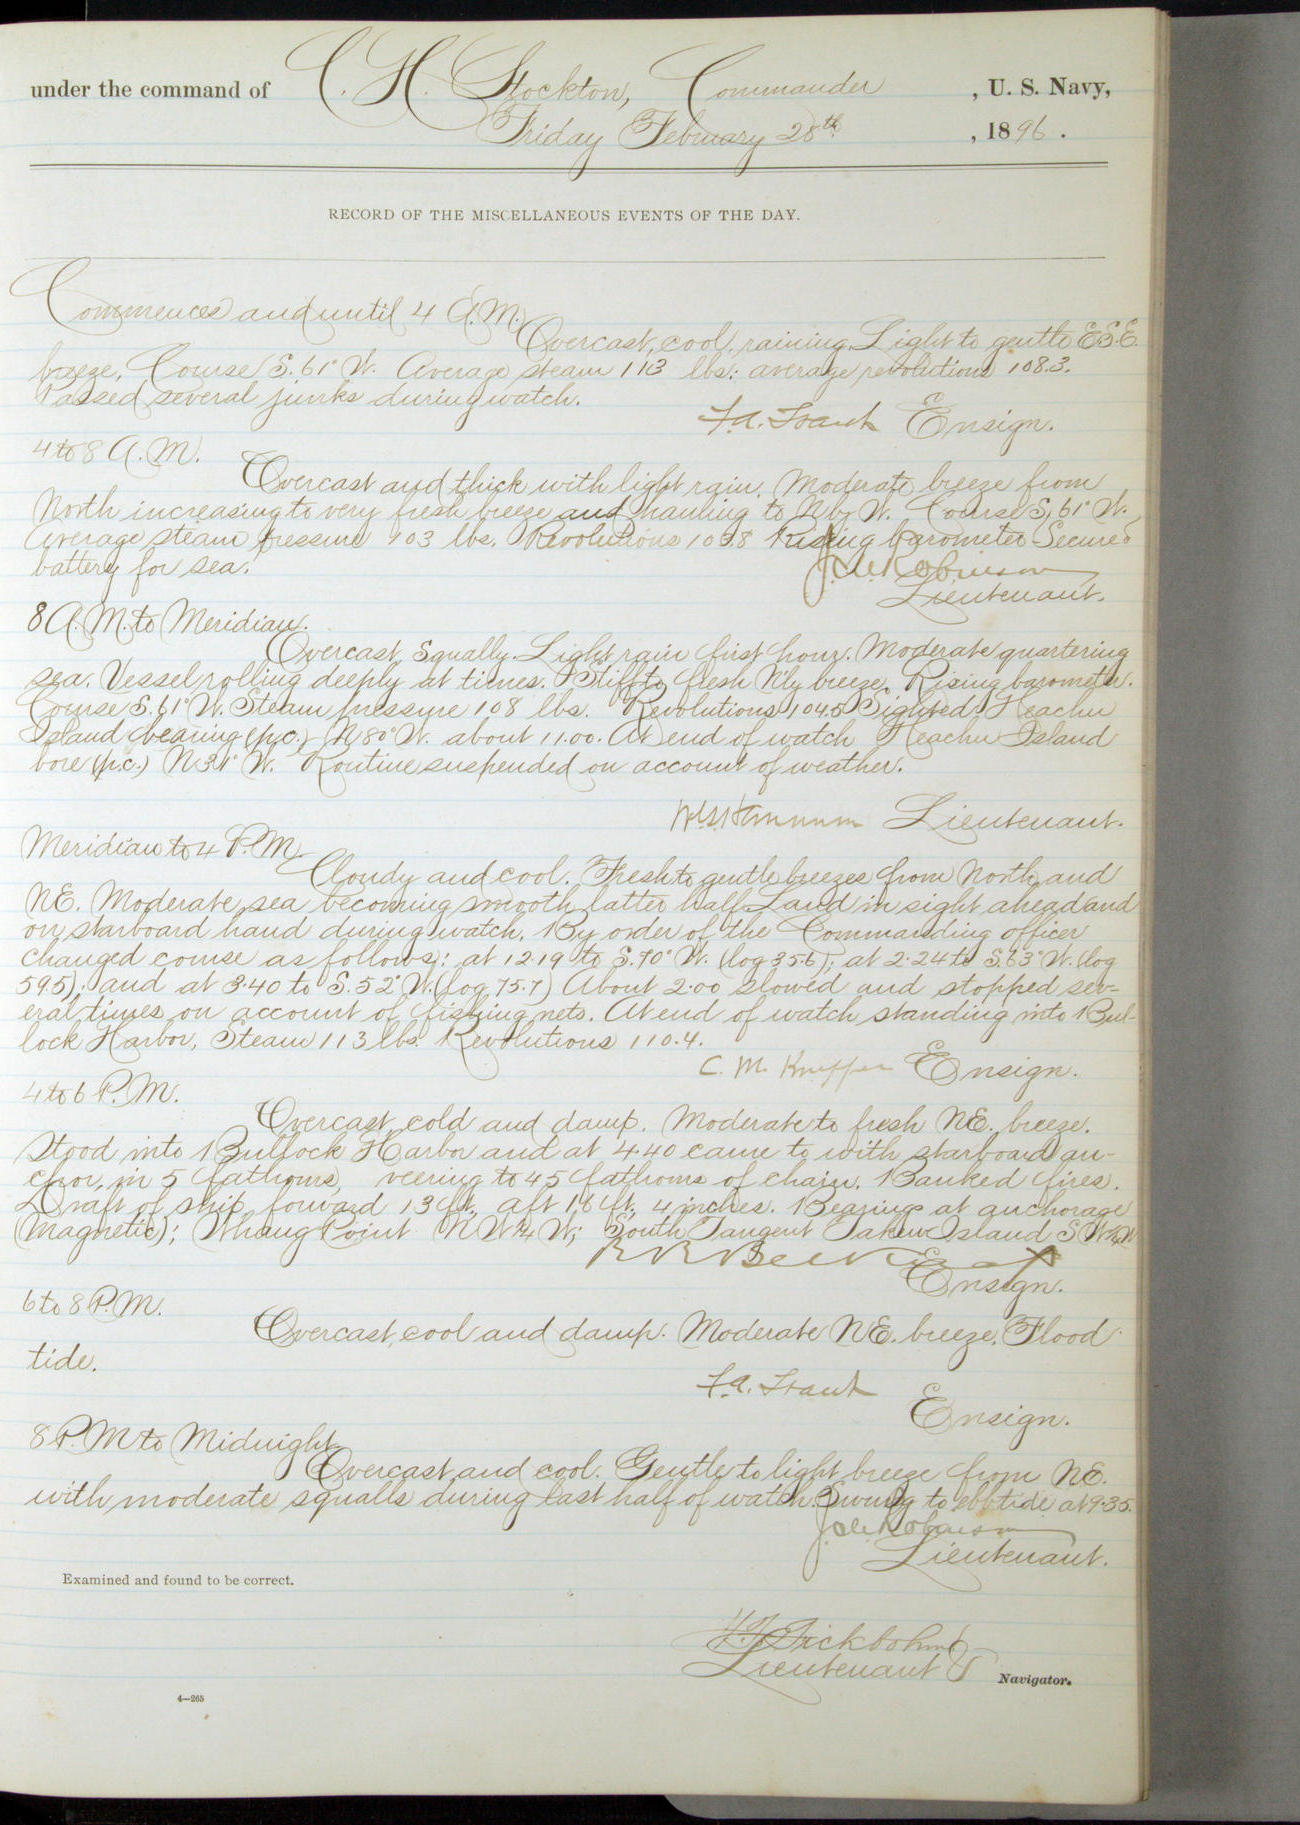 under the command of C. H. Stockton, Commander , U. S. Navy,
Friday February 28th , 1896 .
RECORD OF THE MISCELLANEOUS EVENTS OF THE DAY.
Commences and until 4 A.M.
Overcast, cool, raining. Light to gentle E.S.E.
breeze. Course S. 61° W. Average steam 113 lbs: average revolutions 108.3.
Passed several junks during watch.
F.A. Traut Ensign.
4 to 8 A.M.
Overcast and thick with light rain. Moderate breeze from
North increasing to very fresh breeze and hauling to N by W. Course S. 61° W.
Average steam pressure 103 lbs. Revolutions 103.8 Rising barometer Secured
battery for sea.
Robinson
Lieutenant.
8 A.M. to Meridian.
Overcast, Squally. Light rain first hour. Moderate quartering
sea. Vessel rolling deeply at times. Stiff to fresh N'ly breeze. Rising barometer.
Course S. 61° W. Steam pressure 108 lbs. Revolutions 104.5 Sighted Heachu
Island bearing (p.c.) N 80° W. about 11.00. At end of watch Heachu Island
bore (p.c.) N 31° W. Routine suspended on account of weather.
Lieutenant.
Meridian to 4 P.M.
Cloudy and cool. Fresh to gentle breezes from North and
NE. Moderate sea becoming smooth latter half. Land in sight ahead and
on starboard hand during watch. By order of the Commanding officer
changed course as follows: at 12.19 to S. 70° W. (log 35.6); at 2.24 to S. 63° W. (log
59.5); and at 3.40 to S. 52° W. (log 75.7) About 2.00 slowed and stopped sev-
eral times on account of fishing nets. At end of watch standing into Bul-
lock Harbor. Steam 113 lbs. Revolutions 110.4.
C. M. Knepper Ensign.
4 to 6 P.M.
Overcast, cold and damp. Moderate to fresh NE. breeze.
Stood into Bullock Harbor and at 4.40 came to with starboard an-
chor, in 5 fathoms, veering to 45 fathoms of chain. Banked fires.
Draft of ship, forward 13 ft., aft 16 ft. 4 inches. Bearings at anchorage
(Magnetic); Whang Point N W ¼ W; South Tangent Takew Island S W ¼ W
R R Belknap
Ensign.
6 to 8 P.M.
Overcast, cool and damp. Moderate NE. breeze. Flood
tide.
F.A. Traut
Ensign.
8 P.M to Midnight
Overcast and cool. Gentle to light breeze from NE.
with moderate squalls during last half of watch. Swung to ebb tide at 9.35.
Robinson
Lieutenant.
Examined and found to be correct.
Fickbohm
Lieutenant Navigator.
4—265